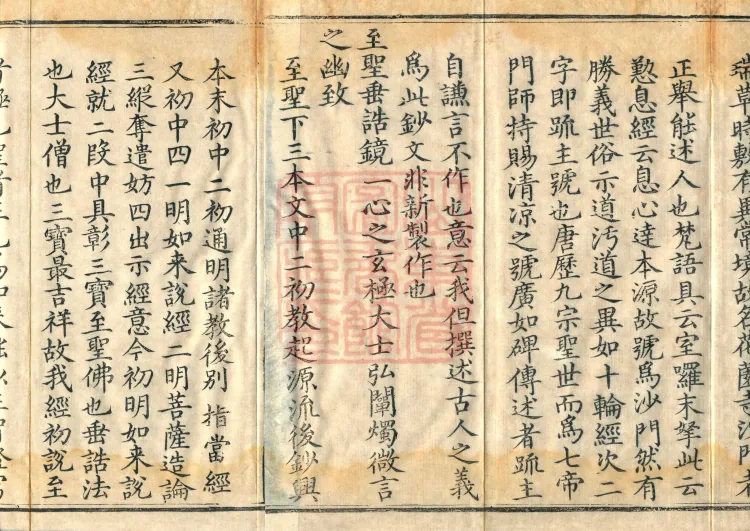 瑞草時敷有異常境故名
正舉能述人也梵語具云室囉末拏此云
懃息經云息心達本源故號為沙門然有
勝義世俗示道汚道之異如十輪經次二
字即䟽主號也唐歷九宗聖世而為七帝
門師特賜清凉之號廣如碑傳述者䟽主
自謙言不作也意云我但撰述古人之義
為此鈔文非新製作也
至聖垂誥鏡一心之玄極大士弘闡燭微言
之幽致
至聖下三本文中二初教起源流後鈔興
本末初中二初通明諸教後別指當經
又初中四一明如来說經二明菩薩造論
三縱奪遣妨四出示經意今初明如来說
經就二叚中具彰三寳至聖佛也垂誥法
也大士僧也三寳最吉祥故我經初說至